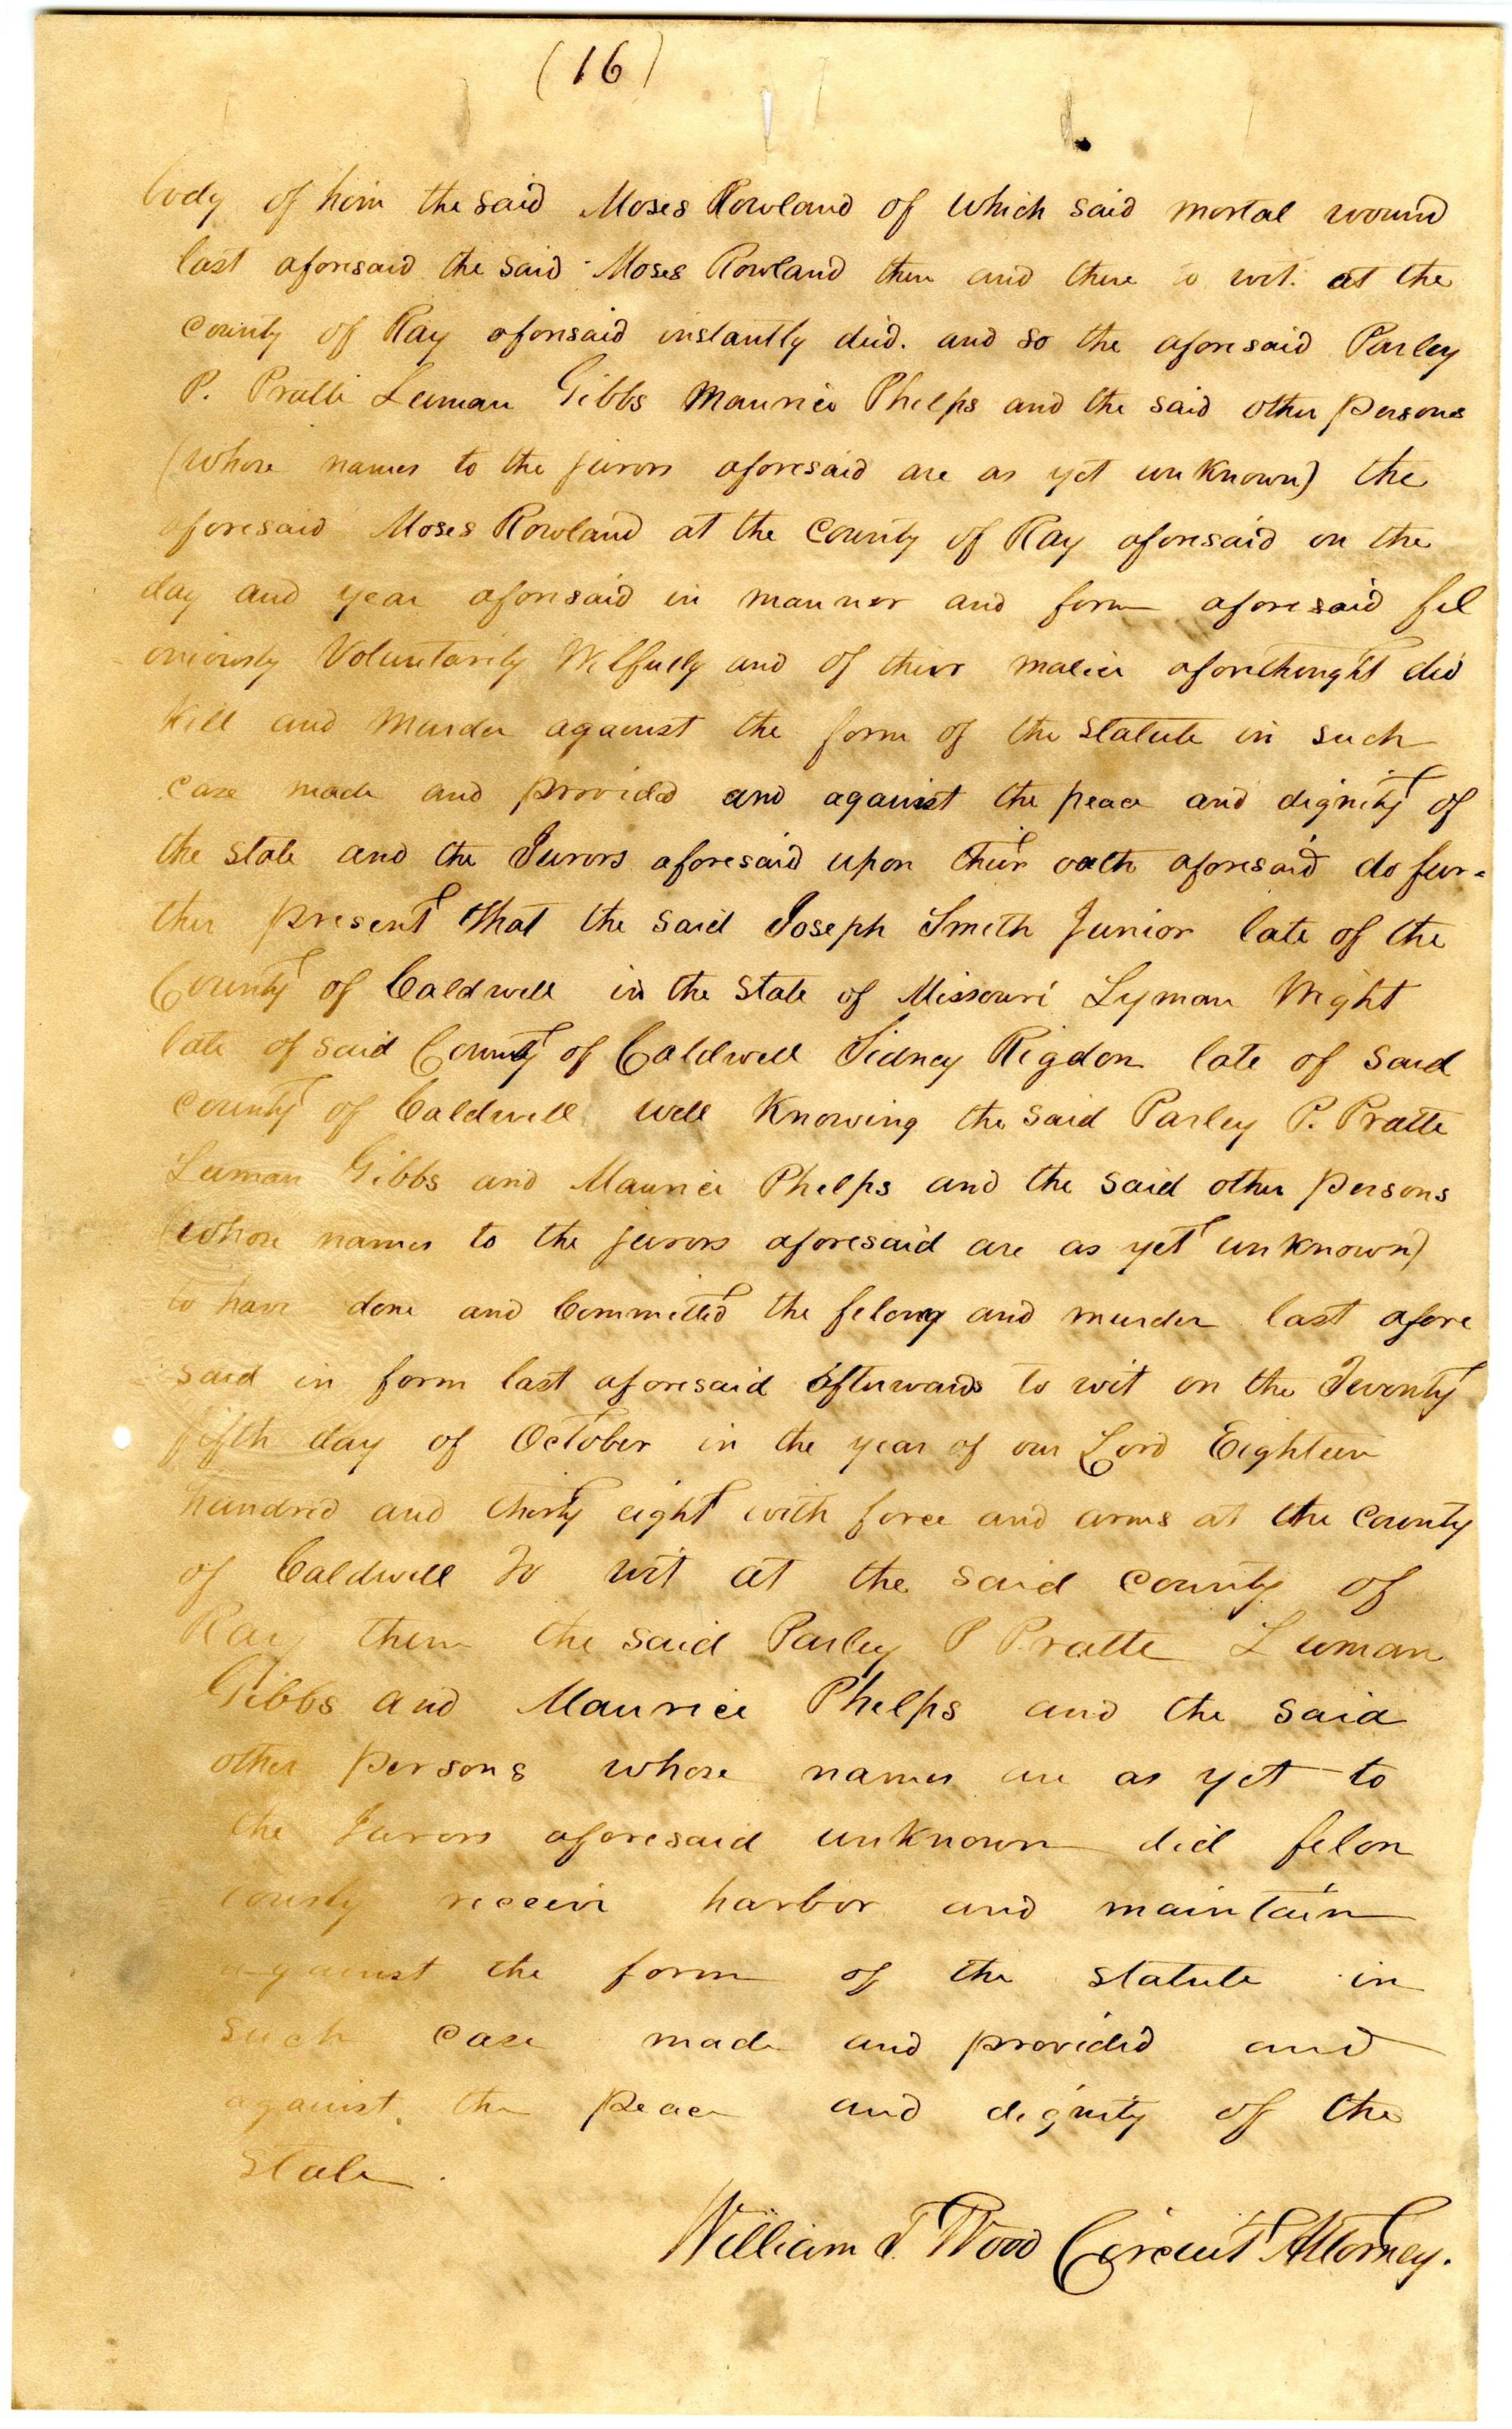 (16)
body of him the said Moses Rowland of which said mortal wound
last aforesaid the said Moses Rowland then and there to wit at the
county of Ray aforesaid instantly died. and so the aforesaid Parley
P. Pratte Luman Gibbs Maurice Phelps and the said other persons
(whose names to the jurors aforesaid are as yet unknown) the
aforesaid Moses Rowland at the county of Ray aforesaid on the
day and year aforesaid in manner and form aforesaid fel
oniously Voluntarily Wilfully and of their malice aforethought did
kill and murder against the form of the statute in such
case made and provided and against the peace and dignity of
the state and the Jurors aforesaid upon their oath aforesaid do fur=
ther present that the said Joseph Smith Junior late of the
County of Caldwell in the State of Missouri Lyman Wight
late of said County of Caldwell Sidney Rigdon late of said
county of Caldwell well knowing the said Parley P. Pratte
Luman Gibbs and Maurice Phelps and the said other persons
(whose names to the jurors aforesaid are as yet unknown)
to have done and Committed the felony and murder last afore
said in form last aforesaid afterwards to wit on the Twenty
fifth day of October in the year of our Lord Eighteen
hundred and thirty eight with force and arms at the county
of Caldwell to wit at the said county of
Ray them the said Parley P Pratte Luman
Gibbs and Maurice Phelps and the said
other persons whose names are as yet to
the Jurors aforesaid unknown did felon
iously receive harbor and maintain
against the form of the statute in
such case made and provided and
against the peace and dignity of the
state.
William T. Wood Circuit Attorney.